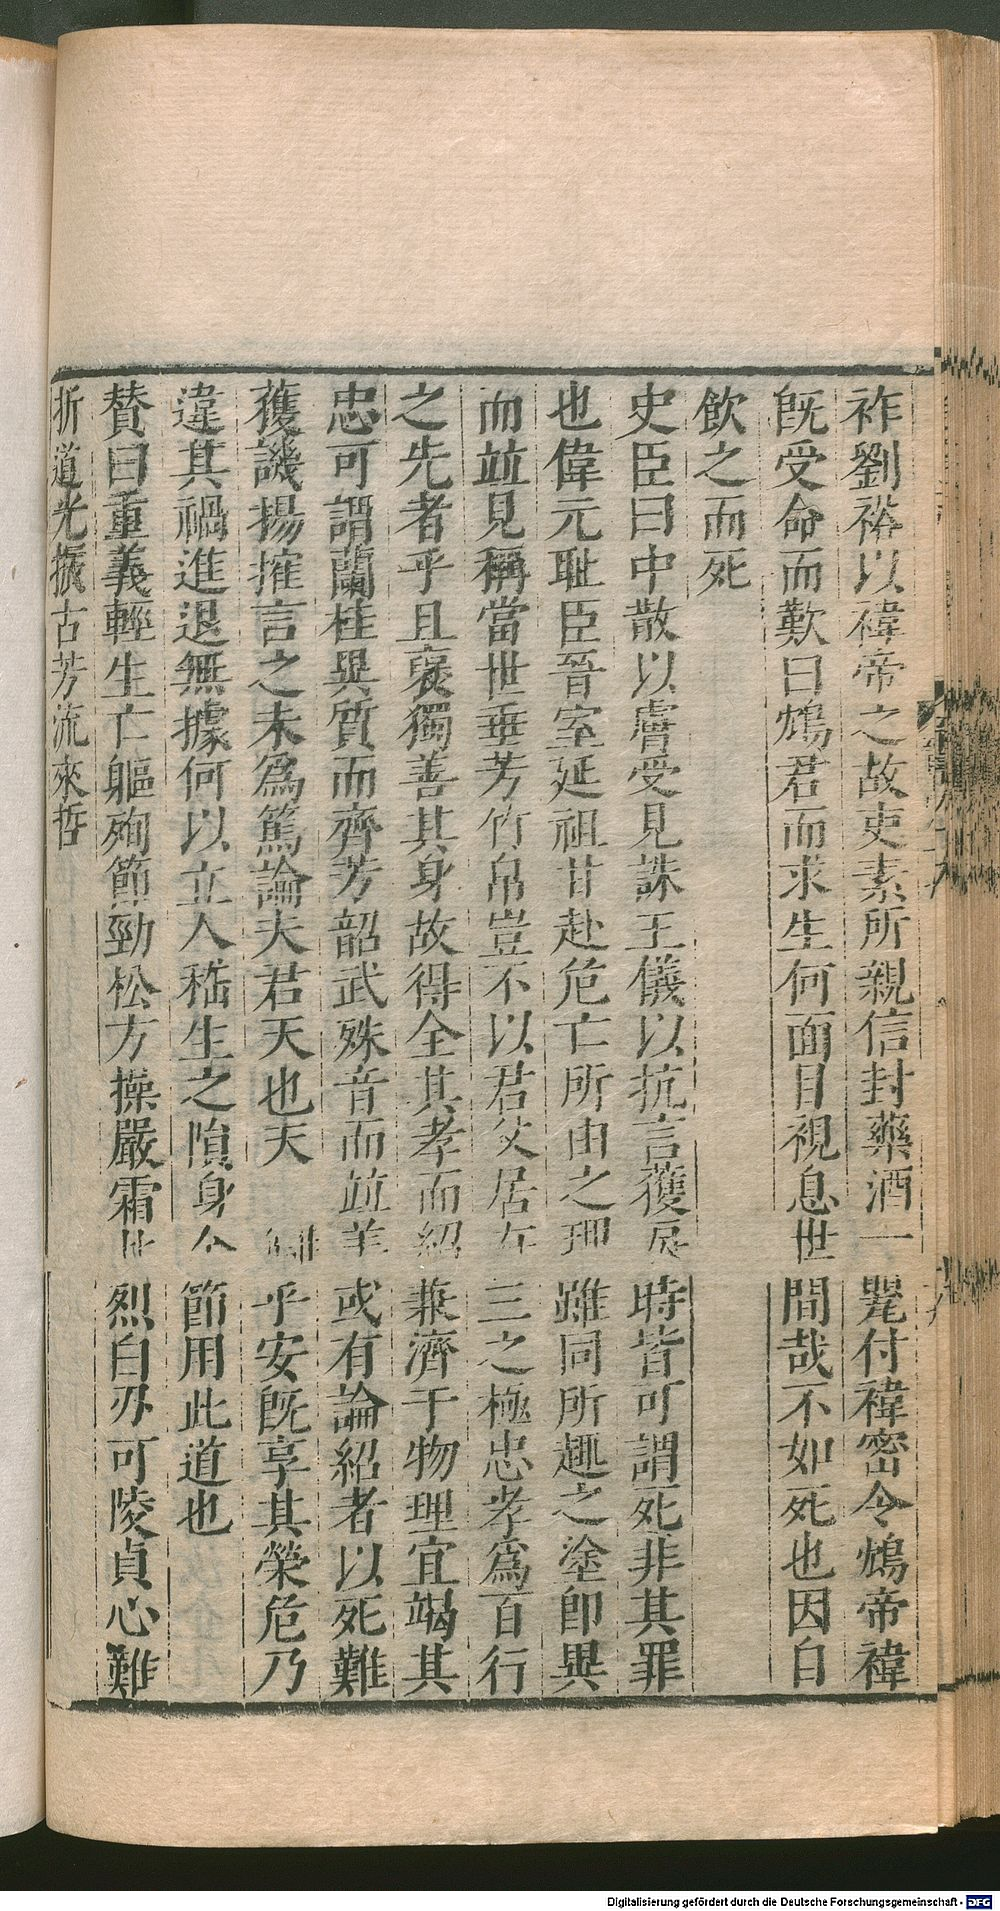 祚劉裕以禕帝之故吏素所親信封藥酒一甖付禕密令鴆帝禕
既受命而歎曰鴆君而求生何面目視息世間哉不如死也因自
飲之而死
史臣曰中散以膚受見誅王儀以抗言獲戾時皆可謂死非其罪
也偉元耻臣晉室延祖甘赴危亡所由之理雖同所趣之塗即異
而竝見稱當世垂芳竹帛豈不以君父居在三之極忠孝爲百行
之先者乎且裒獨善其身故得全其孝而紹兼濟于物理宜竭其
忠可謂蘭桂異質而齊芳韶武殊音而竝美或有論紹者以死難
獲譏揚搉言之未爲篤論夫君天也天 讎乎安既享其榮危乃
違其禍進退無據何以立人嵇生之隕身全節用此道也
贊曰重義輕生亡軀殉節勁松方操嚴霜比烈白刃可陵貞心難
折道光振古芳流來哲
Digitalisierung gefördert durch die Deutsche Forschungsgemeinschaft - DFG